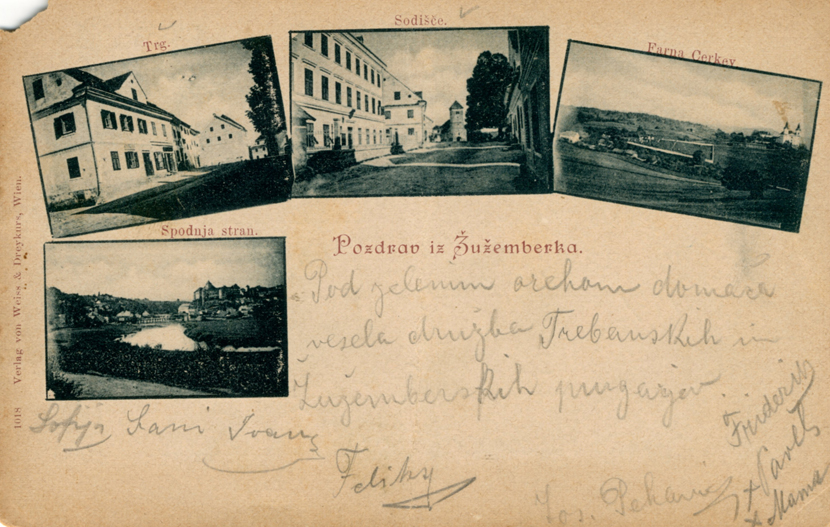 Sodišče.
Trg.
Farna Cerkev.
Spodnja stran.
Pozdrav iz Žužemberka.
Pod zelenim orehom domača
vesela družba Trebanskih in
Žužemberskih purgarjev.
Sofija Fani Ivan
Feliks
Jos. Pehani
Friderik
Pavel
+ Mama
1018 Verlag von Weiss & Dreykurs, Wien.